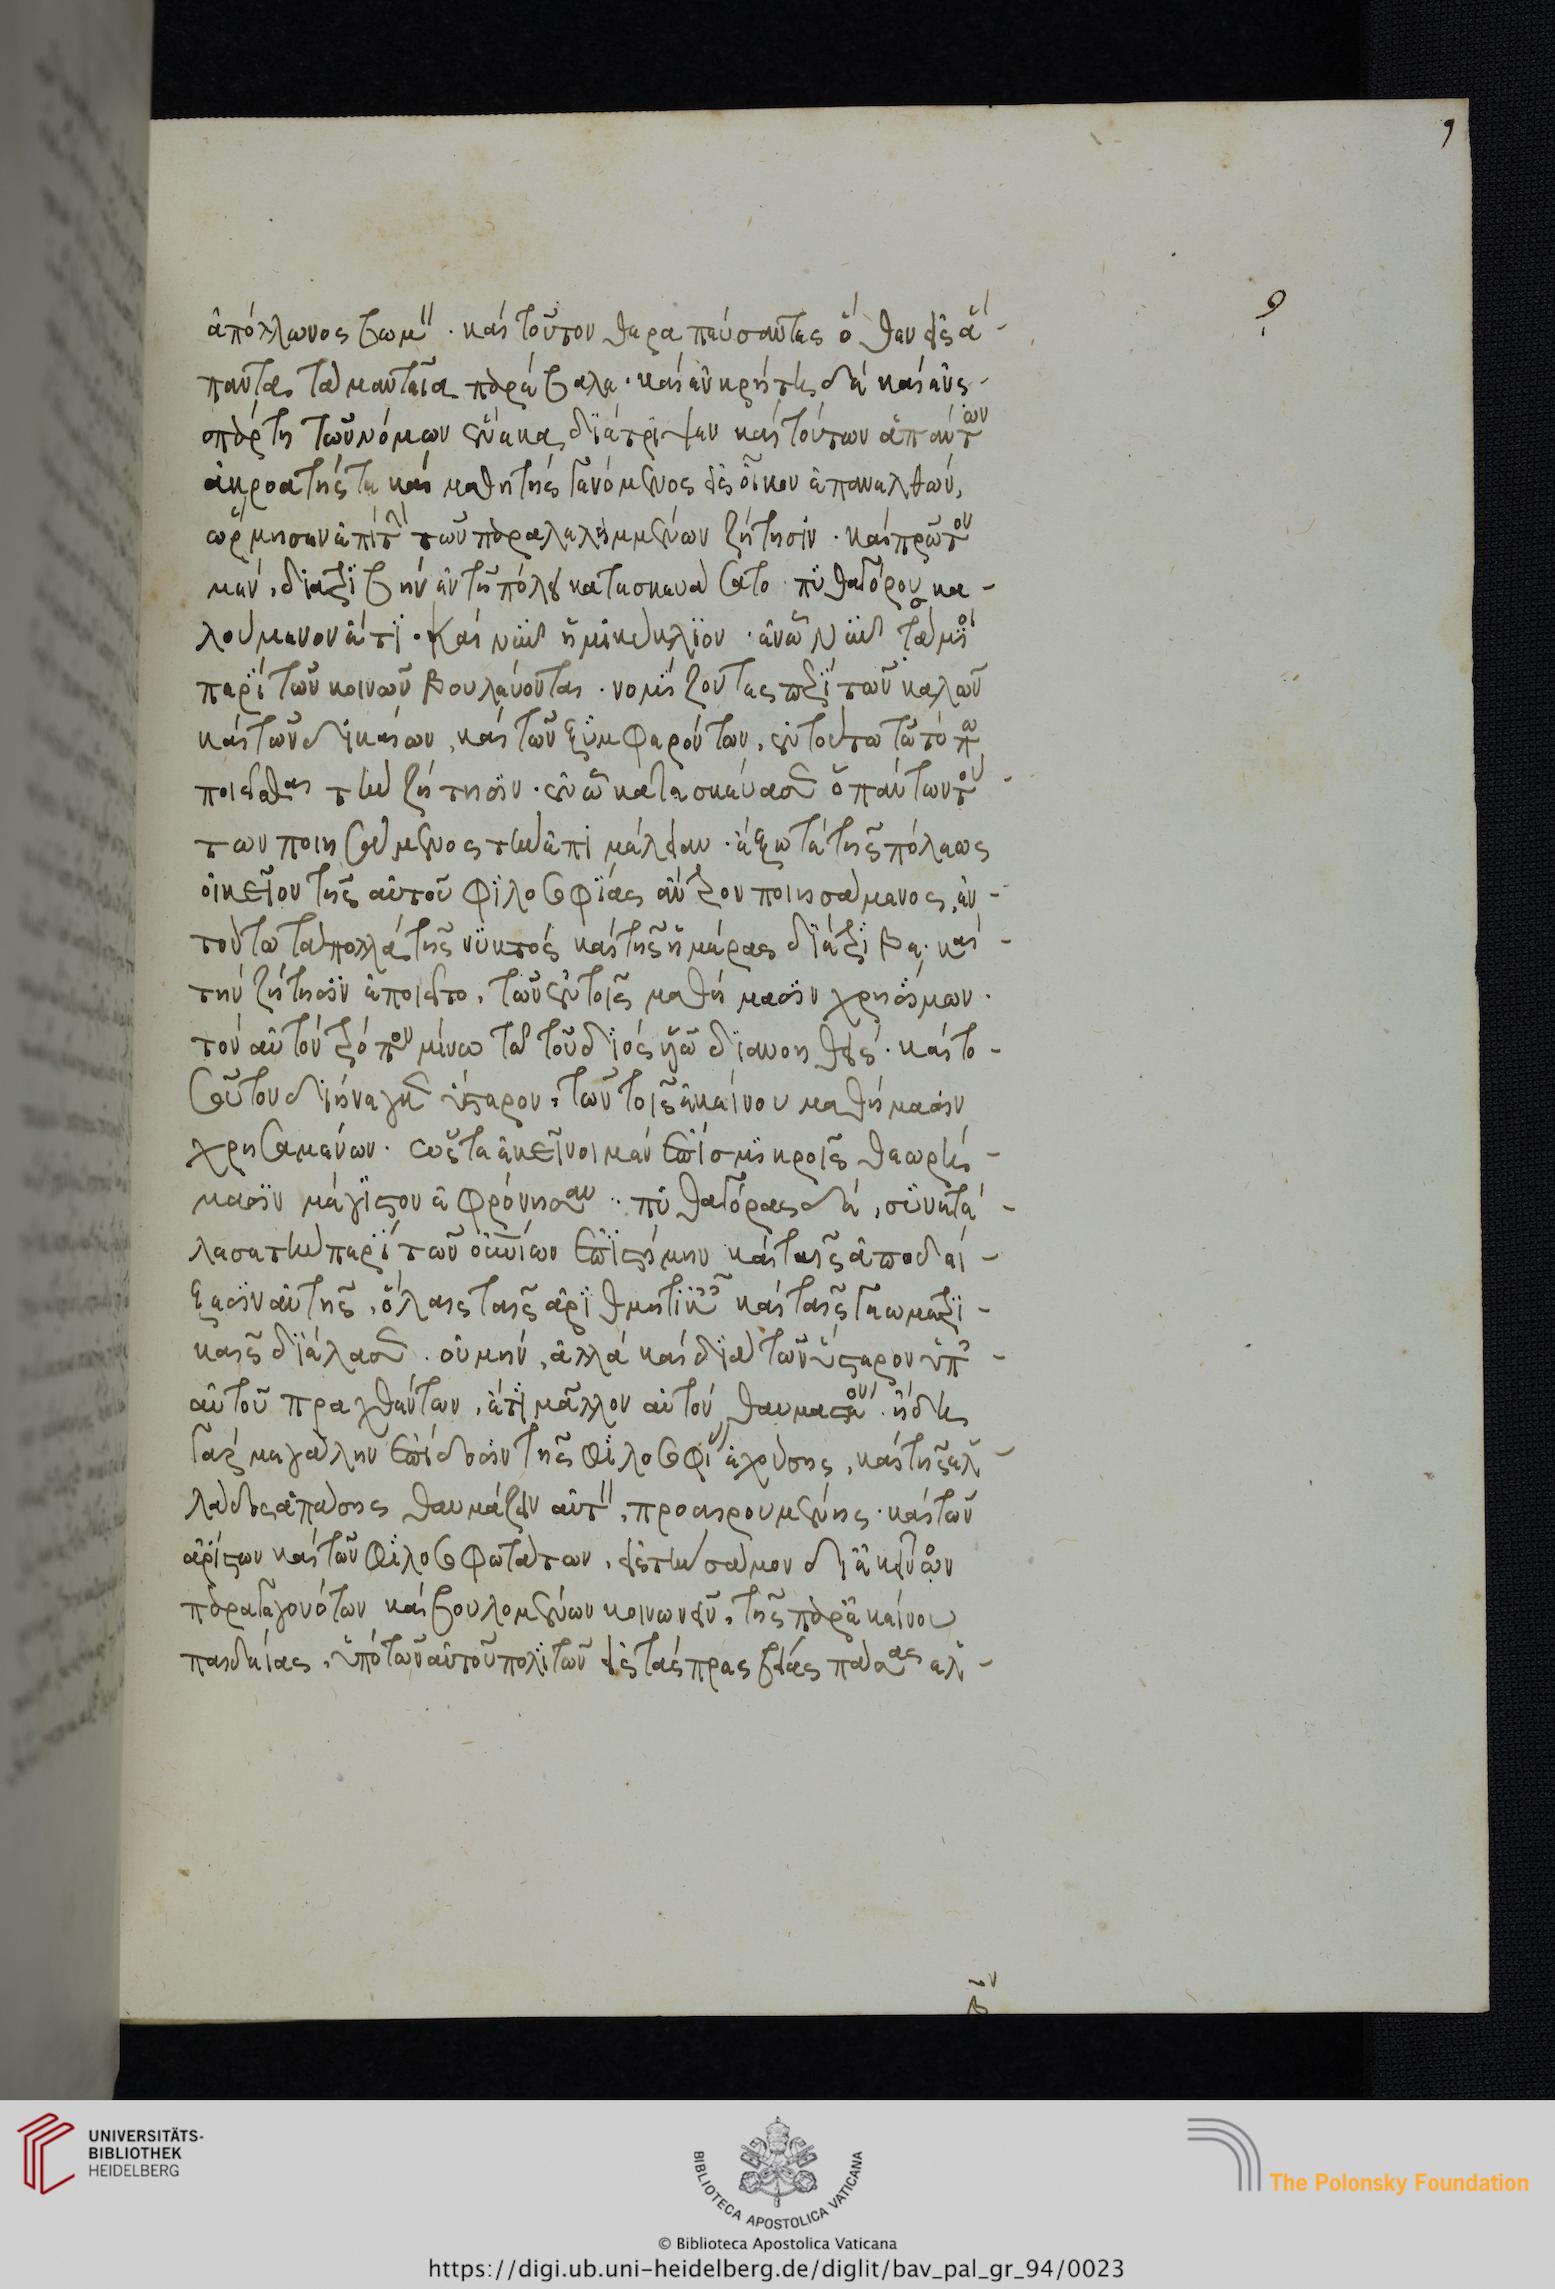 ἀπόλλωνος βωμῶ. καὶ τοῦτον θεραπεύσαντες ὅθεν εἰς ἅ-
παντα τὰ μαντεῖα παρέβαλε. καὶ ἐν κρήτη δὲ καὶ ἐν σ-
πάρτη τῶν νόμων ἕνεκα διέτριψεν καὶ τούτων ἁπάντων
ἀκροατής τε καὶ μαθητὴς γενόμενος εἰς οἶκον ἐπανελθών,
ὥρμησεν ἐπὶ τὴν τῶν παραλελειμμένων ζήτησιν. καὶ πρῶτον
μὲν, διατριβὴν ἐν τῆ πόλει κατεσκευάσατο πυθαγόρου κα-
λούμενον ἔτι. καὶ νῦν ἡμικύκλιον. ἐν ᾧ νῦν σάμιοι
περὶ τῶν κοινῶν βουλεύονται. νομίζοντες περὶ τῶν καλῶν
καὶ τῶν δικαίων, καὶ τῶν ξυμφερόντων, ἐν τούτω τῶ τόπω
ποιεῖσθαι τὴν ζήτησιν. ἐν ᾧ κατεσκεύασεν ὁ πάντων τού-
των ποιησάμενος τὴν ἐπιμέλειαν. ἔξω τε τῆς πόλεως
οἰκεῖον τῆς αὐτοῦ φιλοσοφίας ἄντρον ποιησάμενος, ἐν
τούτω τὰ πολλὰ τῆς νυκτὸς καὶ τῆς ἡμέρας διέτριβε. καὶ
τὴν ζήτησιν ἐποιεῖτο, τῶν ἐν τοῖς μαθήμασιν χρησίμων.
τὸν αὐτὸν τρόπον μίνω τῶ τοῦ διὸς υἱῶ διανοηθείς. καὶ το-
σοῦτον διήνεγκεν ὕστερον, τῶν τοῖς ἐκείνου μαθήμασιν
χρησαμένων. ὥστε ἐκεῖνοι μὲν ἐπὶ σμικροῖς θεωρή-
μασιν μέγιστον ἐφρόνησαν. πυθαγόρας δὲ, συνετέ-
λεσε τὴν περὶ τῶν οὐρανίων ἐπιστήμην καὶ ταῖς ἀποδεί-
ξεσιν αὐτῆς, ὅλαις ταῖς ἀριθμητικαῖς καὶ ταῖς γεωμετρι-
καῖς διέλαβεν. οὐ μὴν, ἀλλὰ καὶ διὰ τῶν ὕστερον ὑπ'
αὐτοῦ πραχθέντων, ἔτι μᾶλλον αὐτὸν θαυμαστέον. ἤδη
γὰρ μεγάλην ἐπίδοσιν τῆς φιλοσοφίας ἐχούσης, καὶ τῆς ἑλ-
λάδος ἁπάσης θαυμάζειν αὐτὸν, προαιρουμένης. καὶ τῶν
ἀρίστων καὶ τῶν φιλοσοφωτάτων, εἰς τὴν σάμον δι' ἐκεῖνον
παραγεγονότων καὶ βουλομένων κοινωνεῖν, τῆς παρ' ἐκείνου
παιδείας. ὑπὸ τῶν αὐτοῦ πολιτῶν εἰς τὰς πρεσβείας πάσας ἑλ-
UNIVERSITÄTS-
BIBLIOTHEK
HEIDELBERG
BIBLIOTECA APOSTOLICA VATICANA
The Polonsky Foundation
© Biblioteca Apostolica Vaticana
https://digi.ub.uni-heidelberg.de/diglit/bav_pal_gr_94/0023